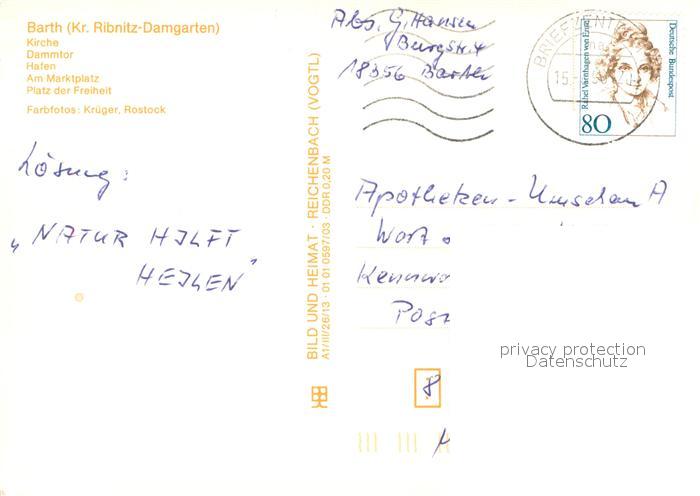 Barth (Kr. Ribnitz-Damgarten)
Kirche
Dammtor
Hafen
Am Marktplatz
Platz der Freiheit
Farbfotos: Krüger, Rostock
Lösung:
„NATUR HILFT
HEILEN"
BILD UND HEIMAT · REICHENBACH (VOGTL)
A1/III/26/13 · 01 01 0597/03 · DDR 0,20 M
Abs. G. Hansen
Burgstr. 4
18356 Barth
BRIEFZENTR
15.
Rahel Varnhagen von Ense
Deutsche Bundespost
80
Apotheken-Umschau A
Wort
Kennwo
Post
8
privacy protection
Datenschutz